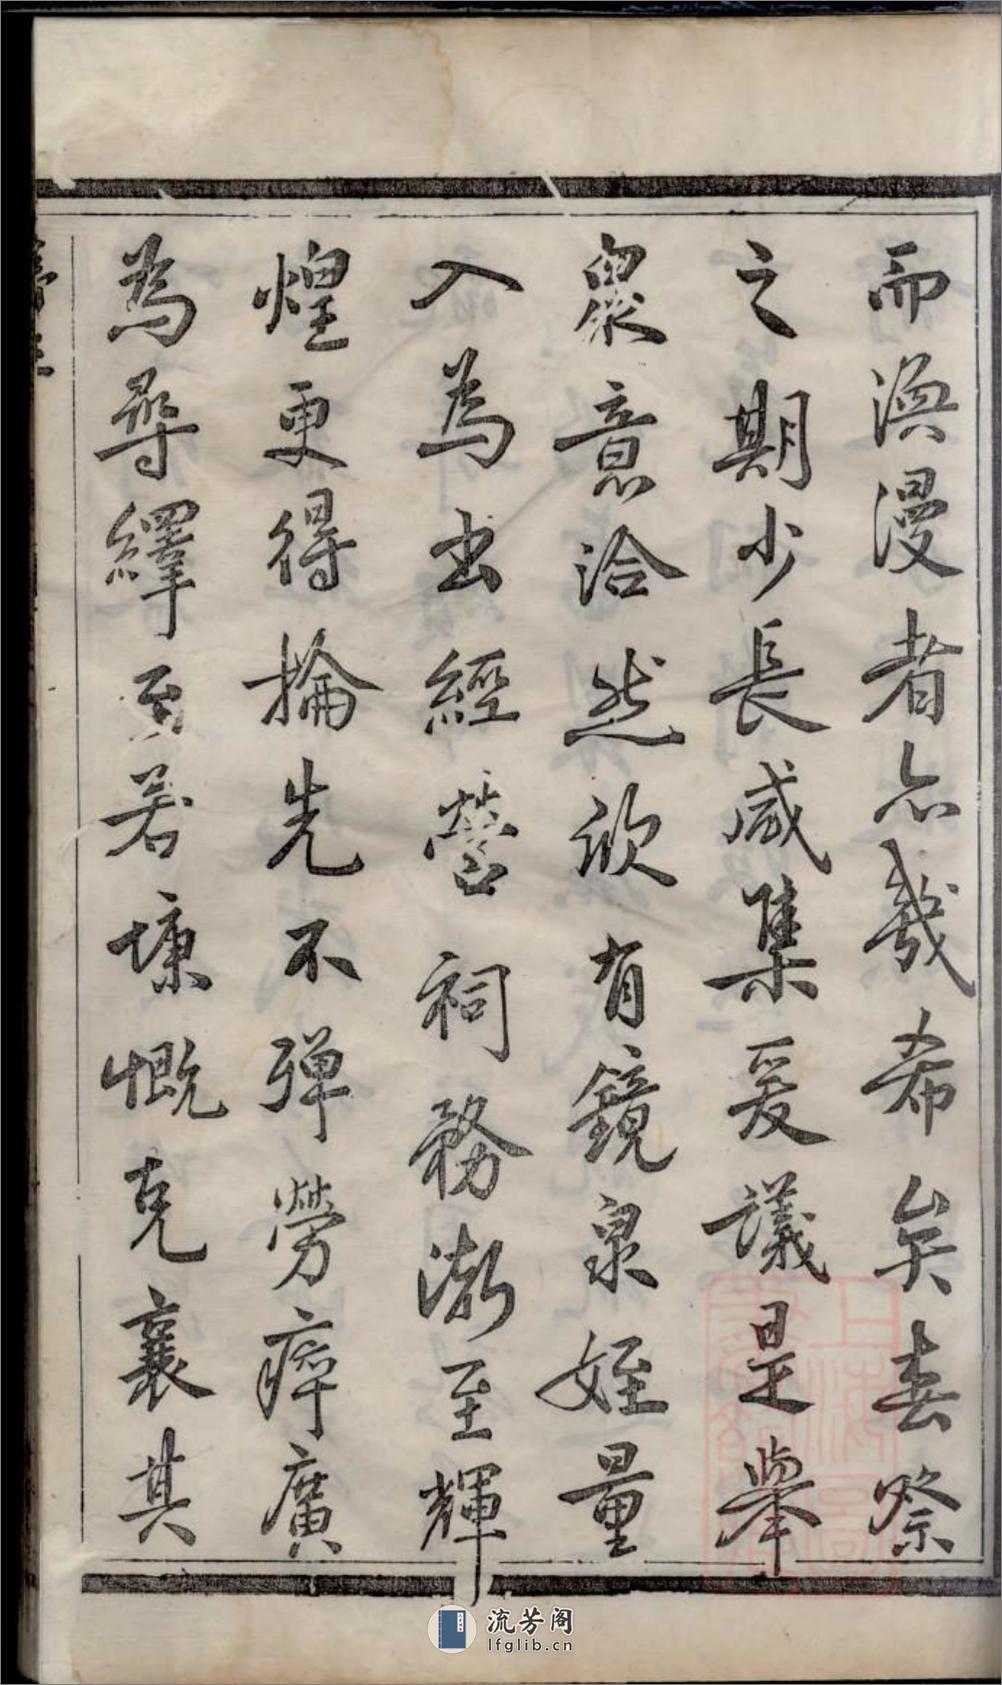 而漶漫者亦幾希矣春祭
之期少長咸集爰議是舉
衆意洽然欣有鏡泉姪量
入為出經營祠務漸至輝
煌更得掄先不憚勞瘁廣
為尋繹至若墉慨克襄其
流芳阁
lfglib.cn